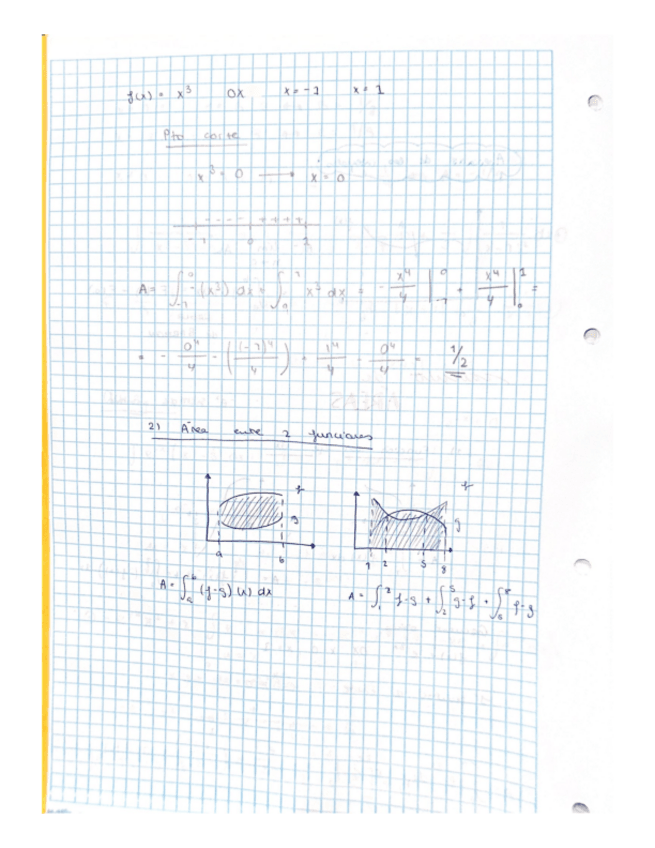 f(x) = x³ OX x = -1 x = 1
Pto corte
x³ = 0 → x = 0
- - - - + + + +
-1 0 1
A = ∫₋₁⁰ -(x³) dx + ∫₀¹ x³ dx = - x⁴/4 |₋₁⁰ + x⁴/4 |₀¹ =
= - 0⁴/4 - ( (-1)⁴/4 ) + 1⁴/4 - 0⁴/4 = 1/2
2) Área entre 2 funciones
f
g
a b
f
g
1 2 5 8
A = ∫ₐᵇ (f-g)(x) dx
A = ∫₁² f-g + ∫₂⁵ g-f + ∫₅⁸ f-g